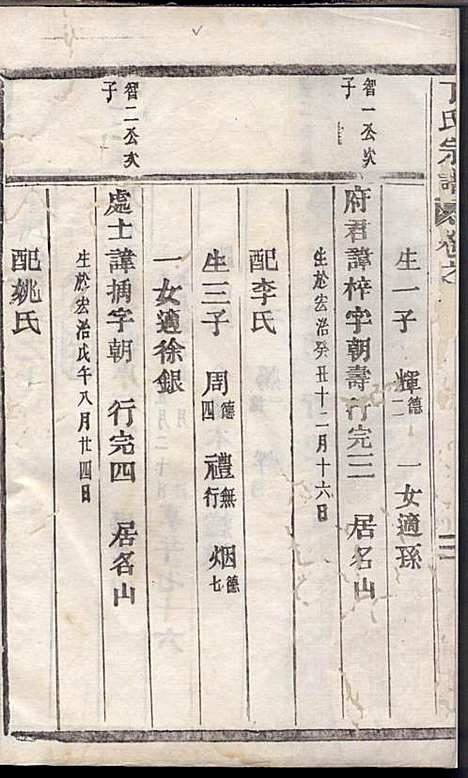 丁氏宗譜 卷之 三
生一子 輝德二 一女適孫
智一公次子
府君諱梓字朝壽行完三 居名山
生於宏治癸丑十二月十六日
配李氏
生三子 周德四 禮無行 烟德七
一女適徐銀
智二公次子
處士諱㧒字朝 行完四 居名山
生於宏治戊午八月廿四日
配姚氏